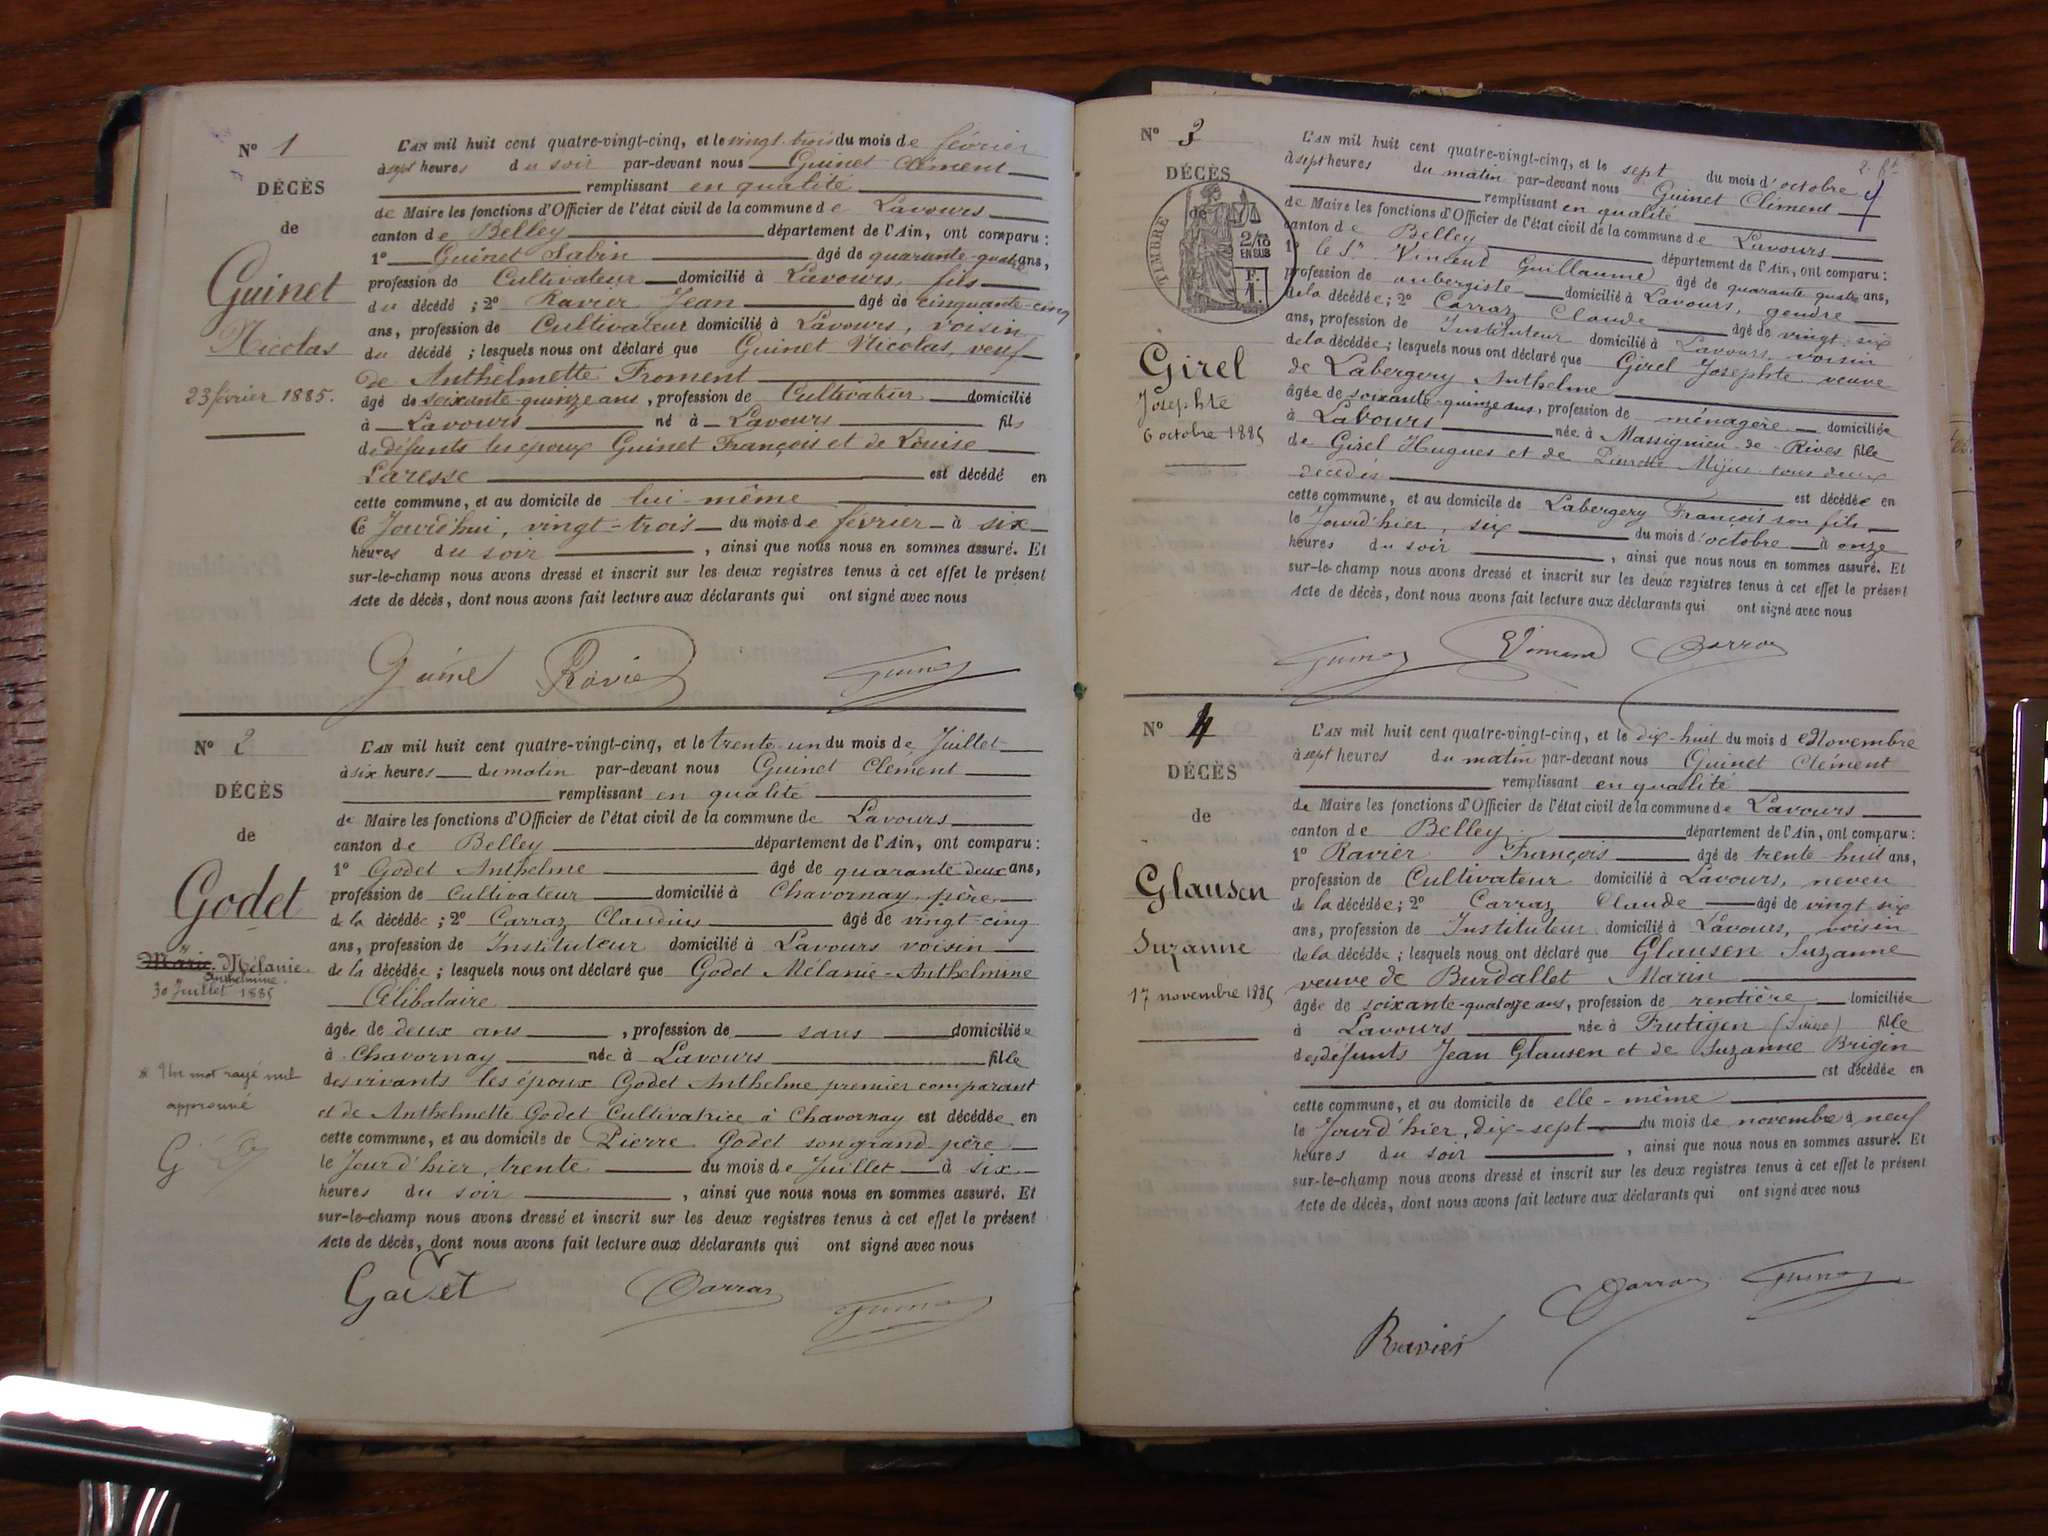 N° 1
DÉCÈS
de
Guinet
Nicolas
23 février 1885.
L'AN mil huit cent quatre-vingt-cinq, et le vingt trois du mois de février
à sept heures du soir par-devant nous Guinet Clément
remplissant en qualité
de Maire les fonctions d'Officier de l'état civil de la commune de Lavours
canton de Belley département de l'Ain, ont comparu :
1° Guinet Sabin âgé de quarante-quatre ans,
profession de Cultivateur domicilié à Lavours, fils
du décédé ; 2° Ravier Jean âgé de cinquante-cinq
ans, profession de Cultivateur domicilié à Lavours, voisin
du décédé ; lesquels nous ont déclaré que Guinet Nicolas, veuf
de Anthelmette Froment
âgé de soixante-quinze ans, profession de Cultivateur domicilié
à Lavours né à Lavours fils
de défunts les époux Guinet François et de Louise
Laresse est décédé en
cette commune, et au domicile de lui-même
ce Jourd'hui, vingt-trois du mois de février à six
heures du soir , ainsi que nous nous en sommes assuré. Et
sur-le-champ nous avons dressé et inscrit sur les deux registres tenus à cet effet le présent
Acte de décès, dont nous avons fait lecture aux déclarants qui ont signé avec nous
Guinet Ravier Guinet
N° 2
DÉCÈS
de
Godet
Marie. Mélanie.
Anthelmine.
30 Juillet 1885
* Un mot rayé nul
approuvé
G
L'AN mil huit cent quatre-vingt-cinq, et le trente-un du mois de Juillet
à six heures du matin par-devant nous Guinet Clement
remplissant en qualité
de Maire les fonctions d'Officier de l'état civil de la commune de Lavours
canton de Belley département de l'Ain, ont comparu :
1° Godet Anthelme âgé de quarante deux ans,
profession de Cultivateur domicilié à Chavornay, père
de la décédée ; 2° Carraz Claudius âgé de vingt-cinq
ans, profession de Instituteur domicilié à Lavours voisin
de la décédée ; lesquels nous ont déclaré que Godet Mélanie-Anthelmine
Célibataire
âgée de deux ans , profession de sans domiciliée
à Chavornay née à Lavours fille
des vivants les époux Godet Anthelme premier comparant
et de Anthelmette Godet Cultivatrice à Chavornay est décédée en
cette commune, et au domicile de Pierre Godet son grand-père
le Jour d'hier, trente du mois de Juillet à six
heures du soir , ainsi que nous nous en sommes assuré. Et
sur-le-champ nous avons dressé et inscrit sur les deux registres tenus à cet effet le présent
Acte de décès, dont nous avons fait lecture aux déclarants qui ont signé avec nous
Godet Carraz Guinet
N° 3
DÉCÈS
de
TIMBRE
2/10
EN SUS
F.
1.
Girel
Josephte
6 octobre 1885
L'AN mil huit cent quatre-vingt-cinq, et le sept du mois d'octobre
à sept heures du matin par-devant nous Guinet Clément
remplissant en qualité
de Maire les fonctions d'Officier de l'état civil de la commune de Lavours
canton de Belley département de l'Ain, ont comparu :
1° le Sr Vincent Guillaume âgé de quarante quatre ans,
profession de aubergiste domicilié à Lavours, gendre
de la décédée ; 2° Carraz Claude âgé de vingt six
ans, profession de Instituteur domicilié à Lavours, voisin
de la décédée ; lesquels nous ont déclaré que Girel Josephte veuve
de Labergery Anthelme
âgée de soixante-quinze ans, profession de ménagère domiciliée
à Lavours née à Massignieu-de-Rives fille
de Girel Hugues et de Pierrette tous deux
décédés est décédée en
cette commune, et au domicile de Labergery François son fils
le Jourd'hier, six du mois d'octobre à onze
heures du soir , ainsi que nous nous en sommes assuré. Et
sur-le-champ nous avons dressé et inscrit sur les deux registres tenus à cet effet le présent
Acte de décès, dont nous avons fait lecture aux déclarants qui ont signé avec nous
Guinet Vincent Carraz
N° 4
DÉCÈS
de
Glausen
Suzanne
17 novembre 1885
L'AN mil huit cent quatre-vingt-cinq, et le dix-huit du mois de Novembre
à sept heures du matin par-devant nous Guinet Clément
remplissant en qualité
de Maire les fonctions d'Officier de l'état civil de la commune de Lavours
canton de Belley département de l'Ain, ont comparu :
1° Ravier François âgé de trente-huit ans,
profession de Cultivateur domicilié à Lavours, neveu
de la décédée ; 2° Carraz Claude âgé de vingt six
ans, profession de Instituteur domicilié à Lavours, voisin
de la décédée ; lesquels nous ont déclaré que Glausen Suzanne
veuve de Burdallet Marin
âgée de soixante-quatorze ans, profession de rentière domiciliée
à Lavours née à Frutigen (Suisse) fille
des défunts Jean Glausen et de Suzanne Brigen
est décédée en
cette commune, et au domicile de elle-même
le Jourd'hier, dix-sept du mois de novembre à neuf
heures du soir , ainsi que nous nous en sommes assuré. Et
sur-le-champ nous avons dressé et inscrit sur les deux registres tenus à cet effet le présent
Acte de décès, dont nous avons fait lecture aux déclarants qui ont signé avec nous
Ravier Carraz Guinet